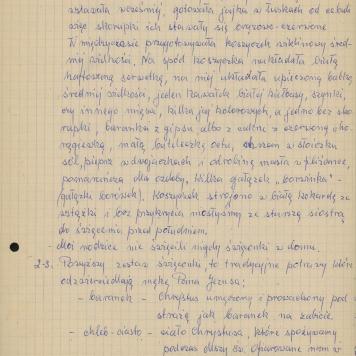 wstawała wcześniej, gotowała jajka w łuskach od cebuli
więc skorupki ich stawały się brązowo-czerwone
W międzyczasie przygotowywała koszyczek wiklinowy śred-
niej wielkości. Na spód koszyczka nakładała białą
haftowaną serwetkę, na niej układała upieczoną babkę
średniej wielkości, jeden kawałek białej kiełbasy, szynki,
czy innego mięsa, kilka jaj kolorowych, a jedno bez sko-
rupki, baranka z gipsu albo z cukru z czerwoną cho-
rągiewką, małą buteleczkę octu, chrzan w słoiczku
sól, pieprz w dwojaczkach i odrobinę masła w pleśniance,
pomarańcza dla ozdoby, kilka gałązek „borówinka"-
gałązki borówek). Koszyczek strojono w białą kokardę ze
wstążki i bez przykrycia niosłyśmy ze starszą siostrą
do święcenia przed południem.
- Moi rodzice nie święcili nigdy święconki w domu.
2-3. Powyższy zestaw święconki, to tradycyjne potrawy które
odzwierciedlają mękę Pana Jezusa:
- baranek - Chrystus umęczony i prowadzony pod
strażą jak baranek na zabicie
- chleb-ciasto - ciało Chrystusa, które spożywamy
podczas Mszy św. Ofiarowane nam w